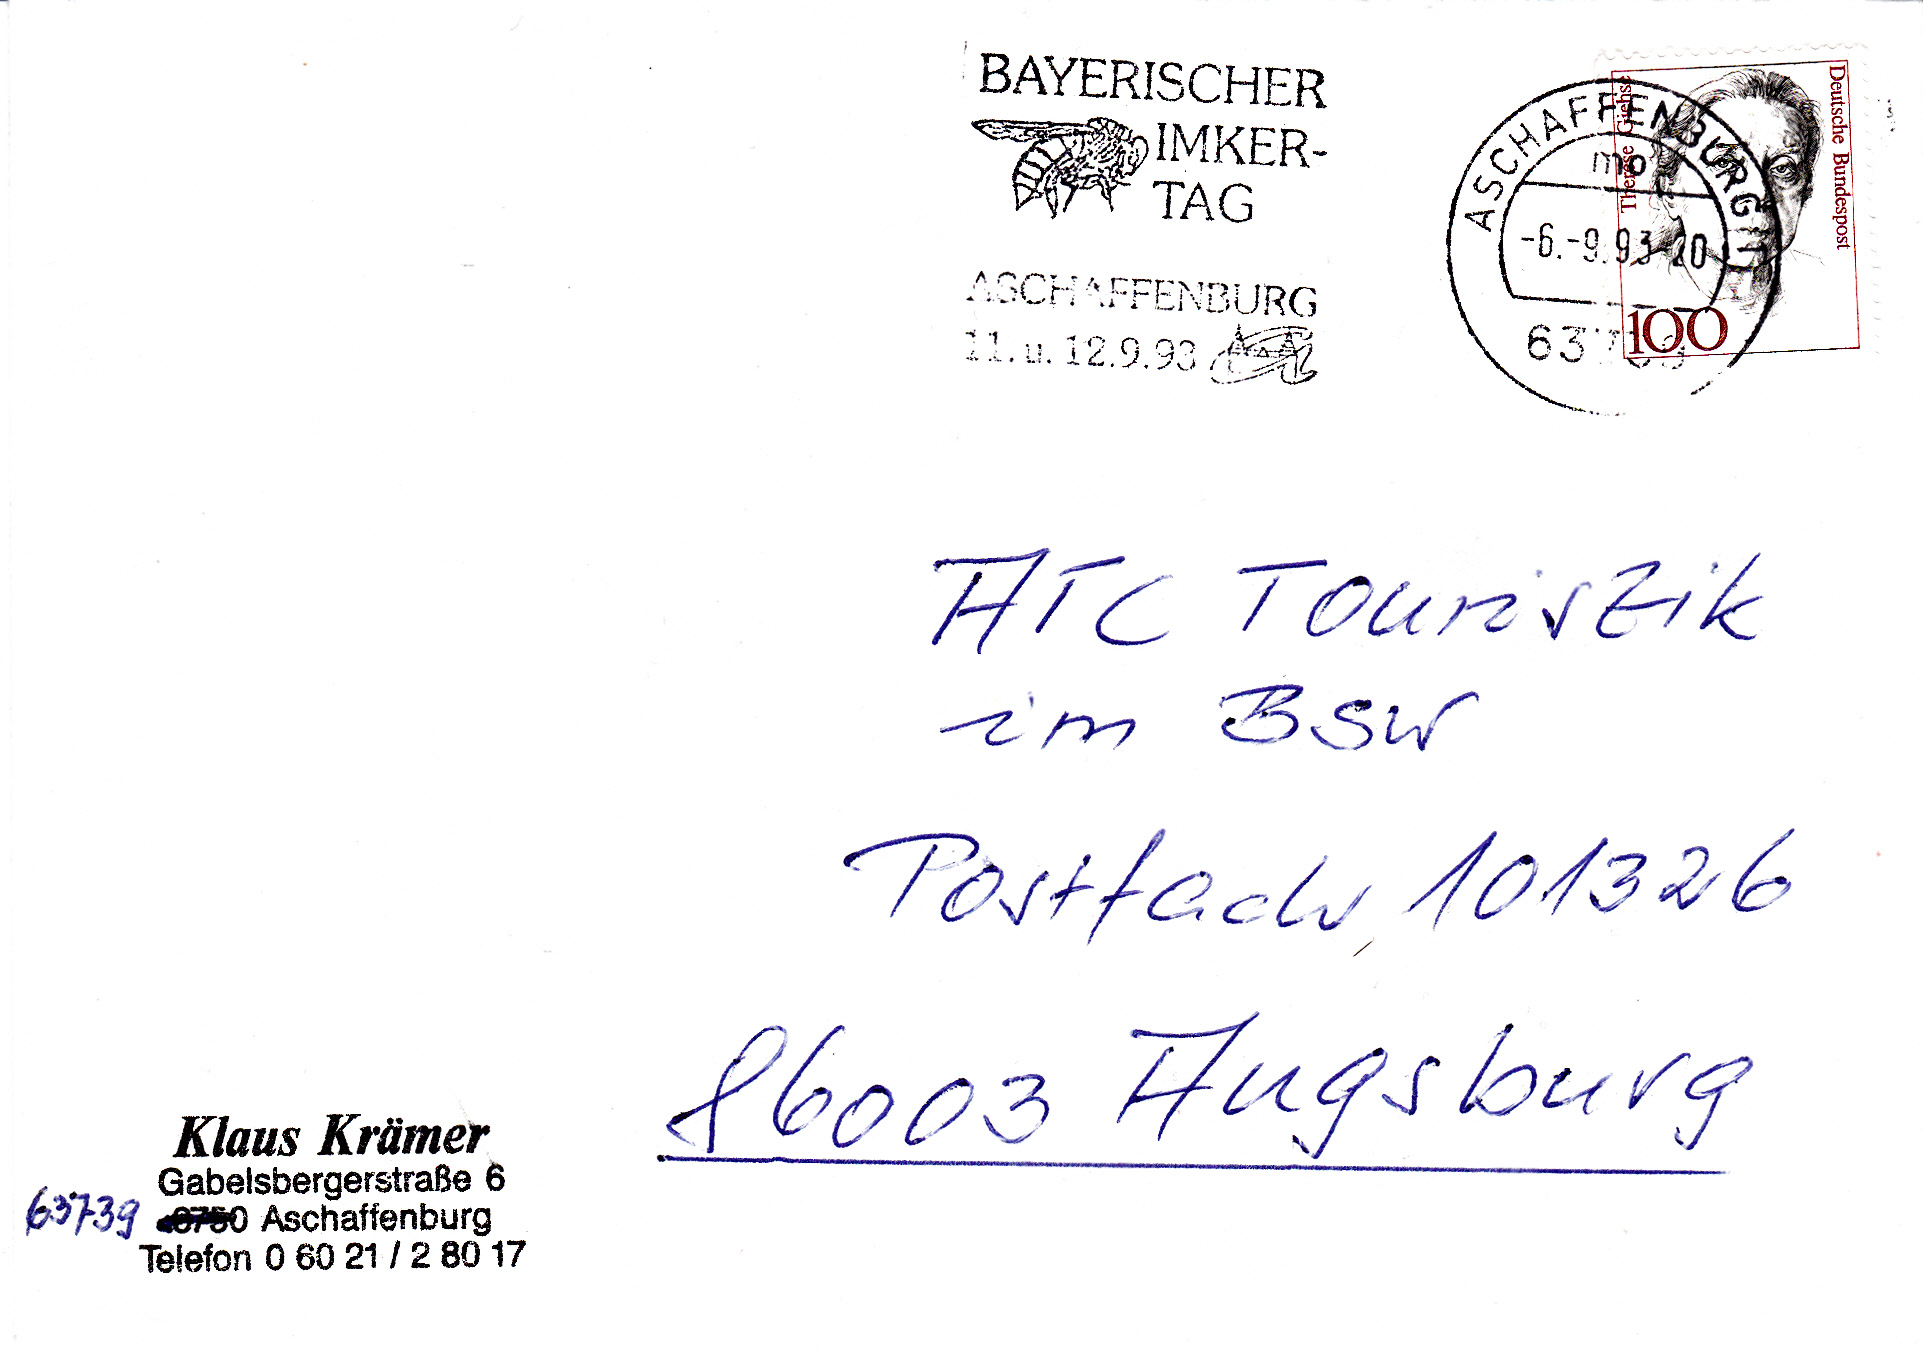 BAYERISCHER
IMKER-
TAG
ASCHAFFENBURG
11. u. 12.9.93
ASCHAFFENBURG
mo
-6.-9.93-20
Therese Giehse
Deutsche Bundespost
100
ATC Touristik
im BSW
Postfach, 101326
86003 Augsburg
Klaus Krämer
Gabelsbergerstraße 6
63739 8750 Aschaffenburg
Telefon 0 60 21 / 2 80 17